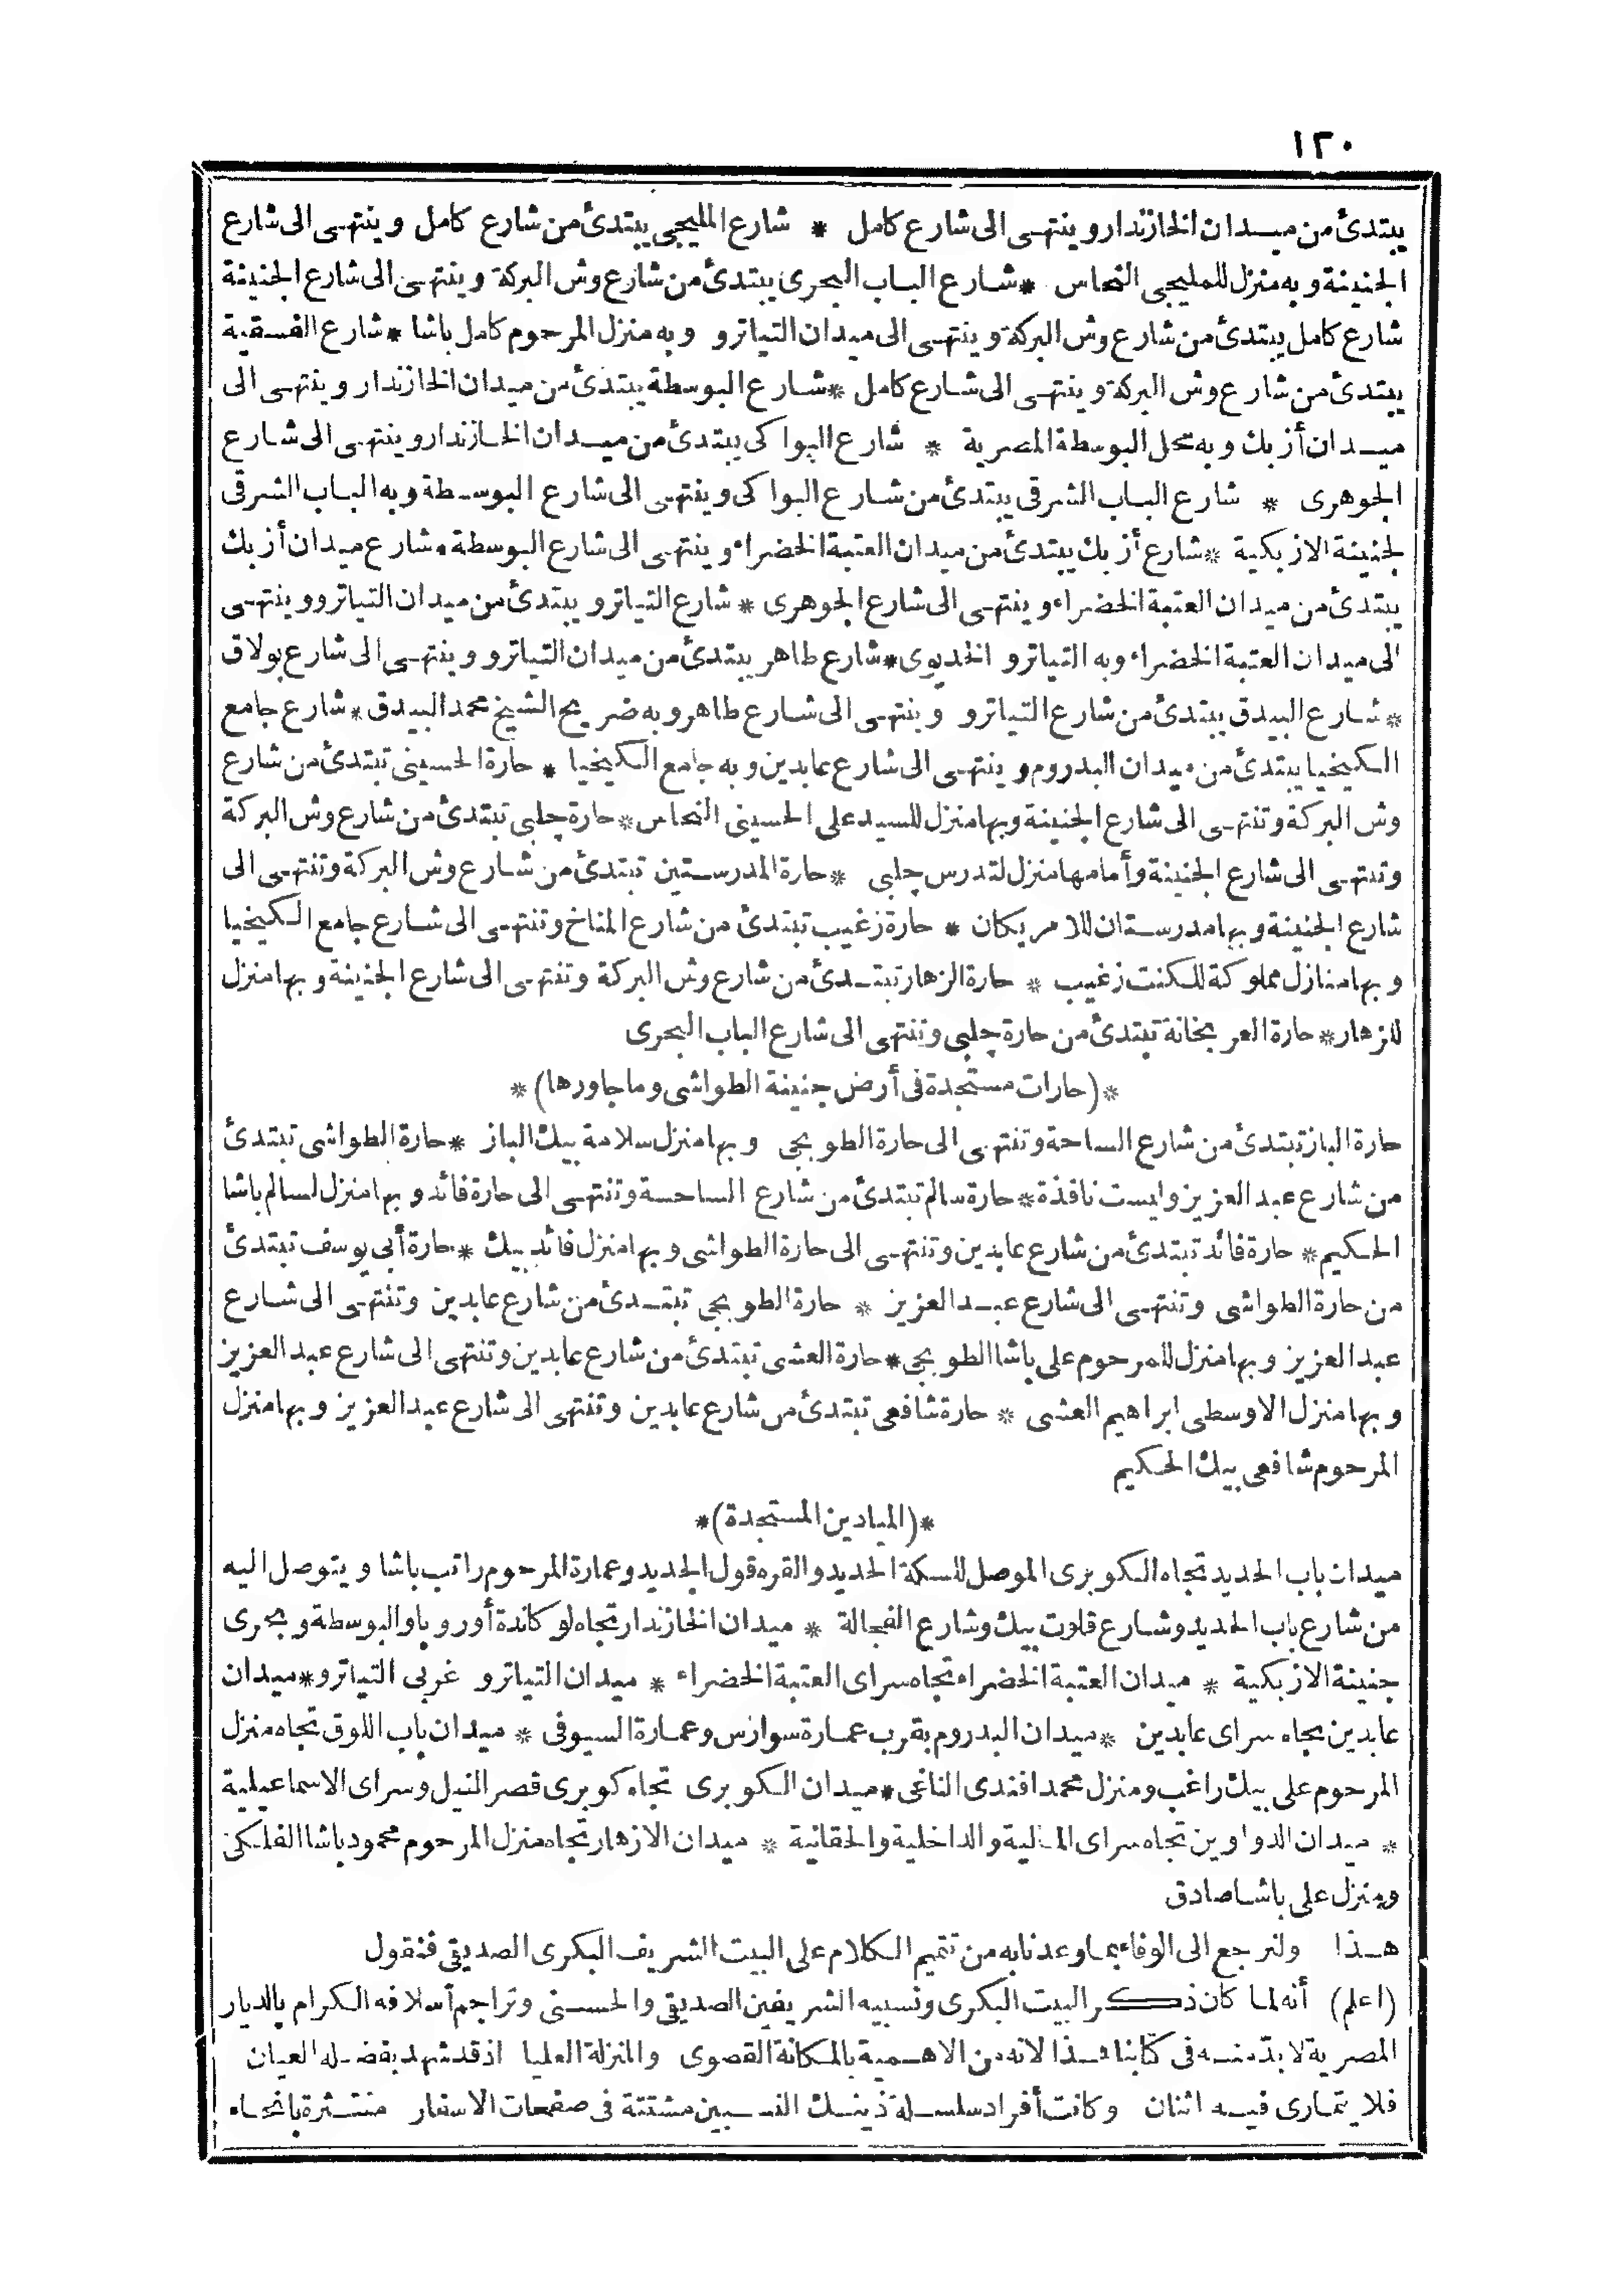 ١٢٠
يبتدئ من ميدان الخازندار وينتهى الى شارع كامل * شارع المليجى يبتدئ من شارع كامل وينتهى الى شارع
الجنينة وبه منزل للمليجى النحاس * شارع الباب البحرى يبتدئ من شارع وش البركة وينتهى الى شارع الجنينة
شارع كامل يبتدئ من شارع وش البركة وينتهى الى ميدان التياترو وبه منزل المرحوم كامل باشا * شارع الفسقية
يبتدئ من شارع وش البركة وينتهى الى شارع كامل * شارع البوسطة يبتدئ من ميدان الخازندار وينتهى الى
ميدان أزبك وبه محل البوسطة المصرية * شارع البواكى يبتدئ من ميدان الخازندار وينتهى الى شارع
الجوهرى * شارع الباب الشرقى يبتدئ من شارع البواكى وينتهى الى شارع البوسطة وبه الباب الشرقى
لجنينة الازبكية * شارع أزبك يبتدئ من ميدان العتبة الخضراء وينتهى الى شارع البوسطة * شارع ميدان أزبك
يبتدئ من ميدان العتبة الخضراء وينتهى الى شارع الجوهرى * شارع التياترو يبتدئ من ميدان التياترو وينتهى
الى ميدان العتبة الخضراء وبه التياترو الخديوى * شارع طاهر يبتدئ من ميدان التياترو وينتهى الى شارع بولاق
* شارع البيدق يبتدئ من شارع التياترو وينتهى الى شارع طاهر وبه ضريح الشيخ محمد البيدق * شارع جامع
الكيخيا يبتدئ من ميدان البدروم وينتهى الى شارع عابدين وبه جامع الكيخيا * حارة الحسينى تبتدئ من شارع
وش البركة وتنتهى الى شارع الجنينة وبها منزل للسيد على الحسينى النحاس * حارة چلبى تبتدئ من شارع وش البركة
وتنتهى الى شارع الجنينة وأمامها منزل لتدرس چلبى * حارة المدرستين تبتدئ من شارع وش البركة وتنتهى الى
شارع الجنينة وبها مدرستان للامريكان * حارة زغيب تبتدئ من شارع المناخ وتنتهى الى شارع جامع الكيخيا
وبها منازل مملوكة للكنت زغيب * حارة الزهار تبتدئ من شارع وش البركة وتنتهى الى شارع الجنينة وبها منزل
للزهار * حارة العربخانة تبتدئ من حارة چلبى وتنتهى الى شارع الباب البحرى
*(حارات مستجدة فى أرض جنينة الطواشى وما جاورها)*
حارة الباز تبتدئ من شارع الساحة وتنتهى الى حارة الطوبجى وبها منزل سلامة بيك الباز * حارة الطواشى تبتدئ
من شارع عبد العزيز وليست نافذة * حارة سالم تبتدئ من شارع الساحسة وتنتهى الى حارة فائد وبها منزل لسالم باشا
الحكيم * حارة فائد تبتدئ من شارع عابدين وتنتهى الى حارة الطواشى وبها منزل فائد بيك * حارة أبى يوسف تبتدئ
من حارة الطواشى وتنتهى الى شارع عبد العزيز * حارة الطوبجى تبتدئ من شارع عابدين وتنتهى الى شارع
عبد العزيز وبها منزل للمرحوم على باشا الطوبجى * حارة العشى تبتدئ من شارع عابدين وتنتهى الى شارع عبد العزيز
وبها منزل الاوسطى ابراهيم العشى * حارة شافعى تبتدئ من شارع عابدين وتنتهى الى شارع عبد العزيز وبها منزل
المرحوم شافعى بيك الحكيم
*(الميادين المستجدة)*
ميدان باب الحديد تجاه الكوبرى الموصل للسكة الحديد والقره قول الجديد وعمارة المرحوم راتب باشا ويتوصل اليه
من شارع باب الحديد وشارع قلوت بيك وشارع الفجالة * ميدان الخازندار تجاه لوكاندة أوروپا والبوسطة وبحرى
جنينة الازبكية * ميدان العتبة الخضراء تجاه سراى العتبة الخضراء * ميدان التياترو غربى التياترو * ميدان
عابدين تجاه سراى عابدين * ميدان البدروم بقرب عمارة سوارس وعمارة السيوفى * ميدان باب اللوق تجاه منزل
المرحوم على بيك راغب ومنزل محمد افندى الناغى * ميدان الكوبرى تجاه كوبرى قصر النيل وسراى الاسماعيلية
* ميدان الدواوين تجاه سراى المالية والداخلية والحقانية * ميدان الازهار تجاه منزل المرحوم محمود باشا الفلكى
ومنزل على باشا صادق
هذا ولنرجع الى الوفاء بما وعدنا به من تتميم الكلام على البيت الشريف البكرى الصديقى فنقول
(اعلم) أنه لما كان ذكر البيت البكرى ونسبيه الشريفين الصديقى والحسنى وتراجم أسلافه الكرام بالديار
المصرية لا بدّ منه فى كتابنا هذا لانه من الاهمية بالمكانة القصوى والمنزلة العليا اذ قد شهد بفضله العيان
فلا يتمارى فيه اثنان وكانت أفراد سلسلة ذينك النسبين مشتتة فى صفحات الاسفار منتثرة بانحاء